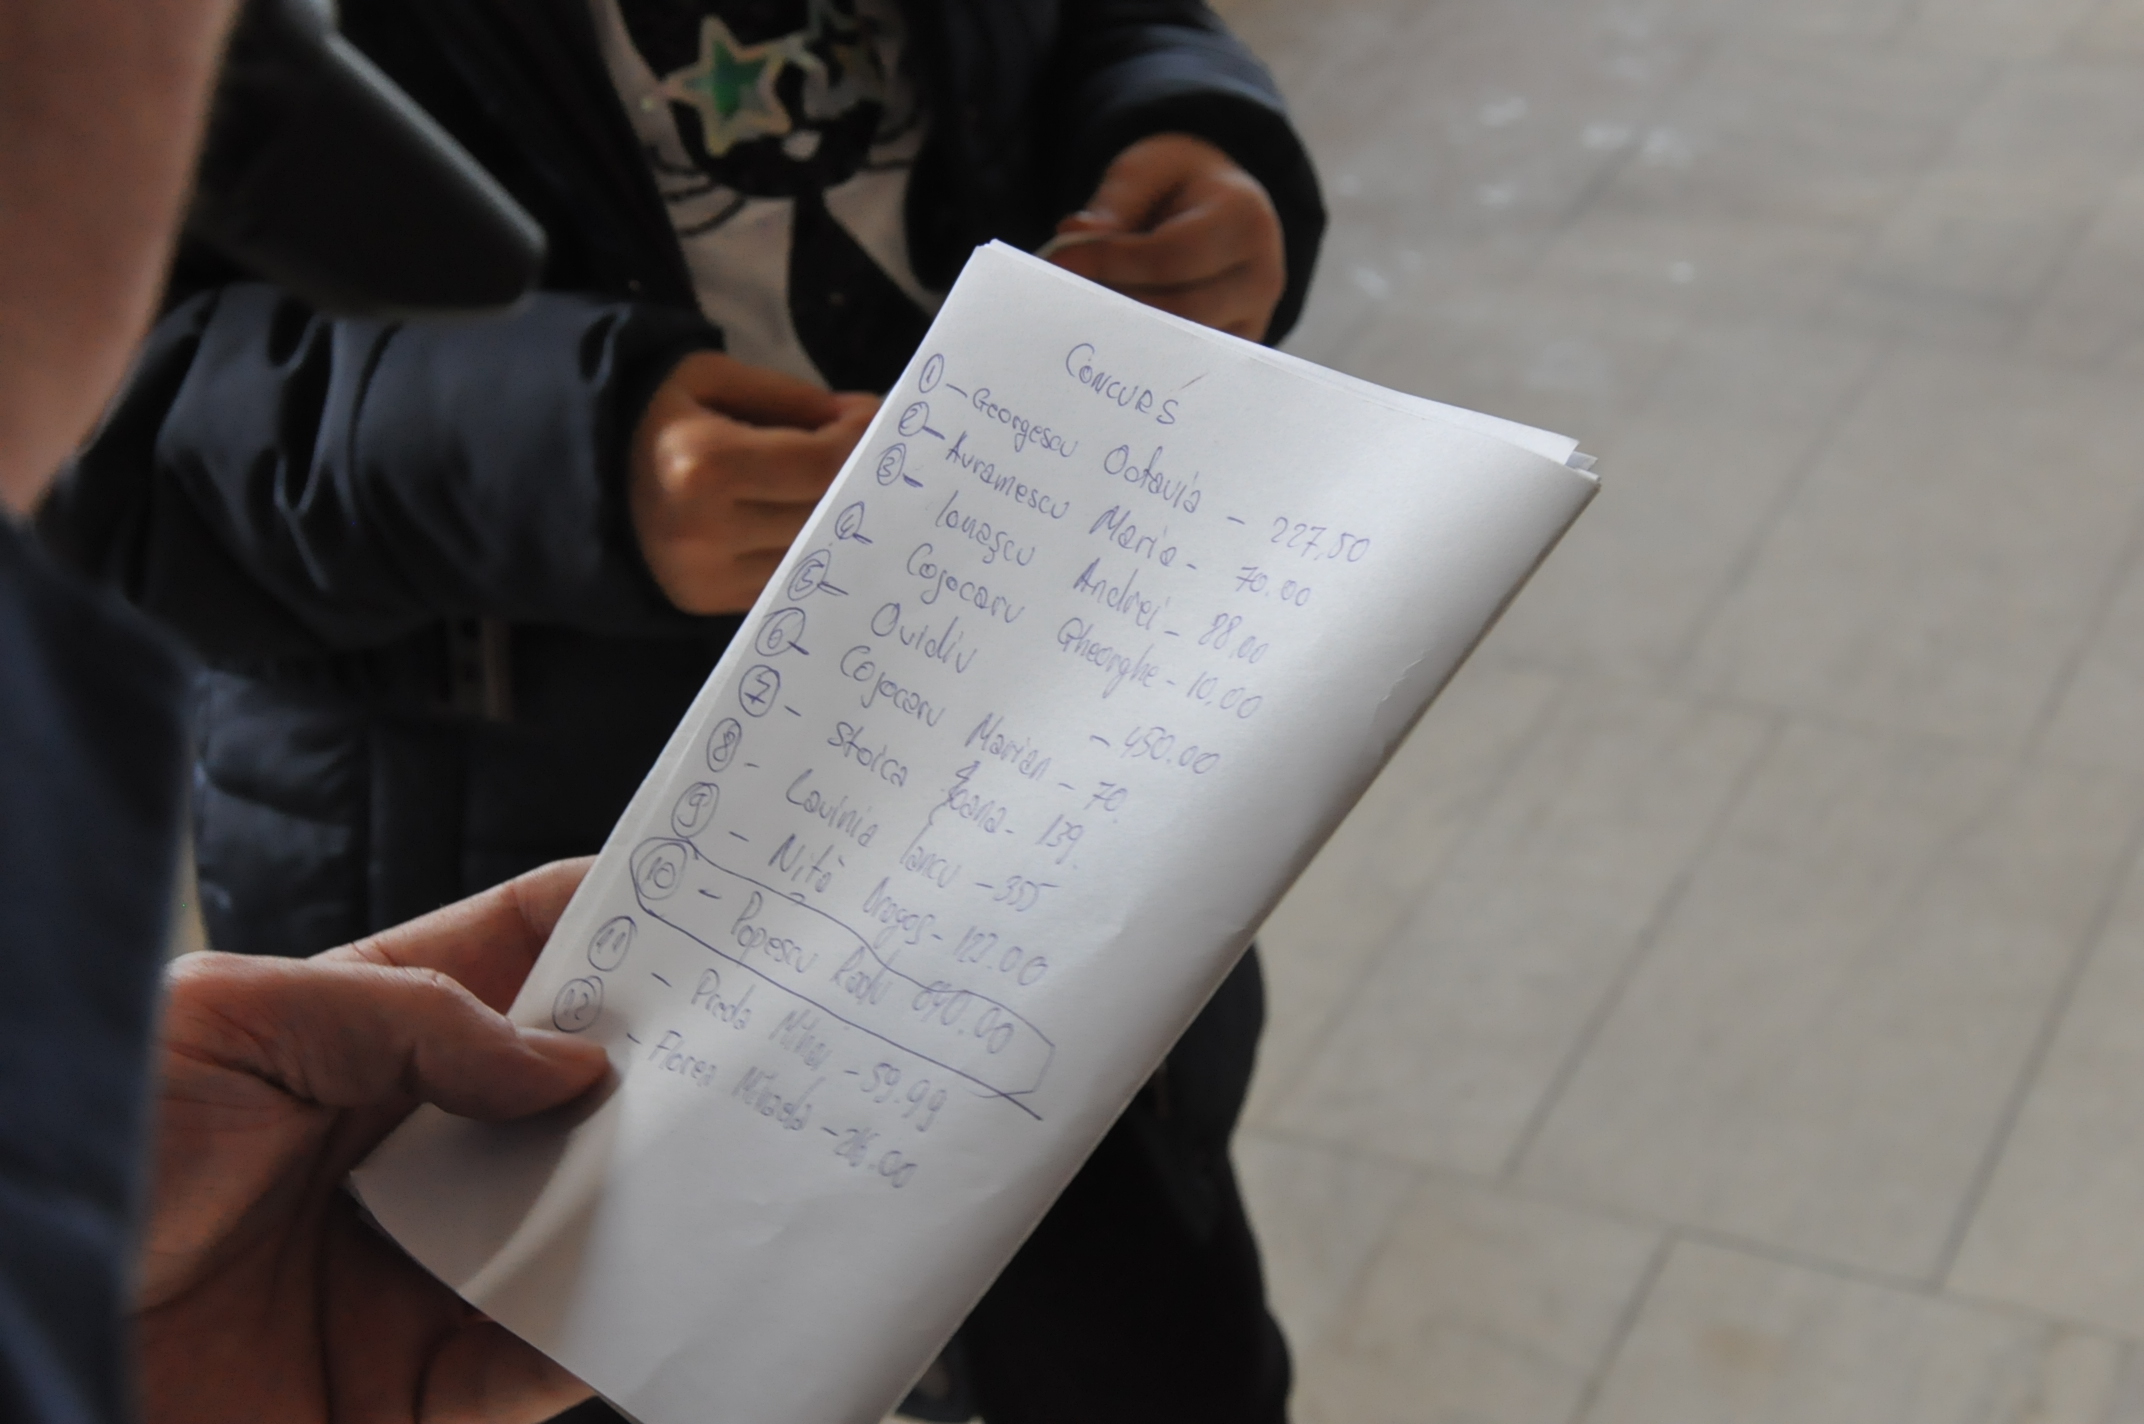 CONCURS
1 - Georgescu Octavia - 227,50
2 - Avramescu Maria - 70.00
3 - Ionașcu Andrei - 88,00
4 - Cojocaru Gheorghe - 10,00
5 - Ovidiu - 450.00
6 - Cojocaru Marian - 70.
7 - Stoica Ioana - 139.
8 - Lavinia Iancu - 355
9 - Niță Dragoș - 122.00
10 - Popescu Radu
11 - Preda Mihai - 59.99
12 - Florea